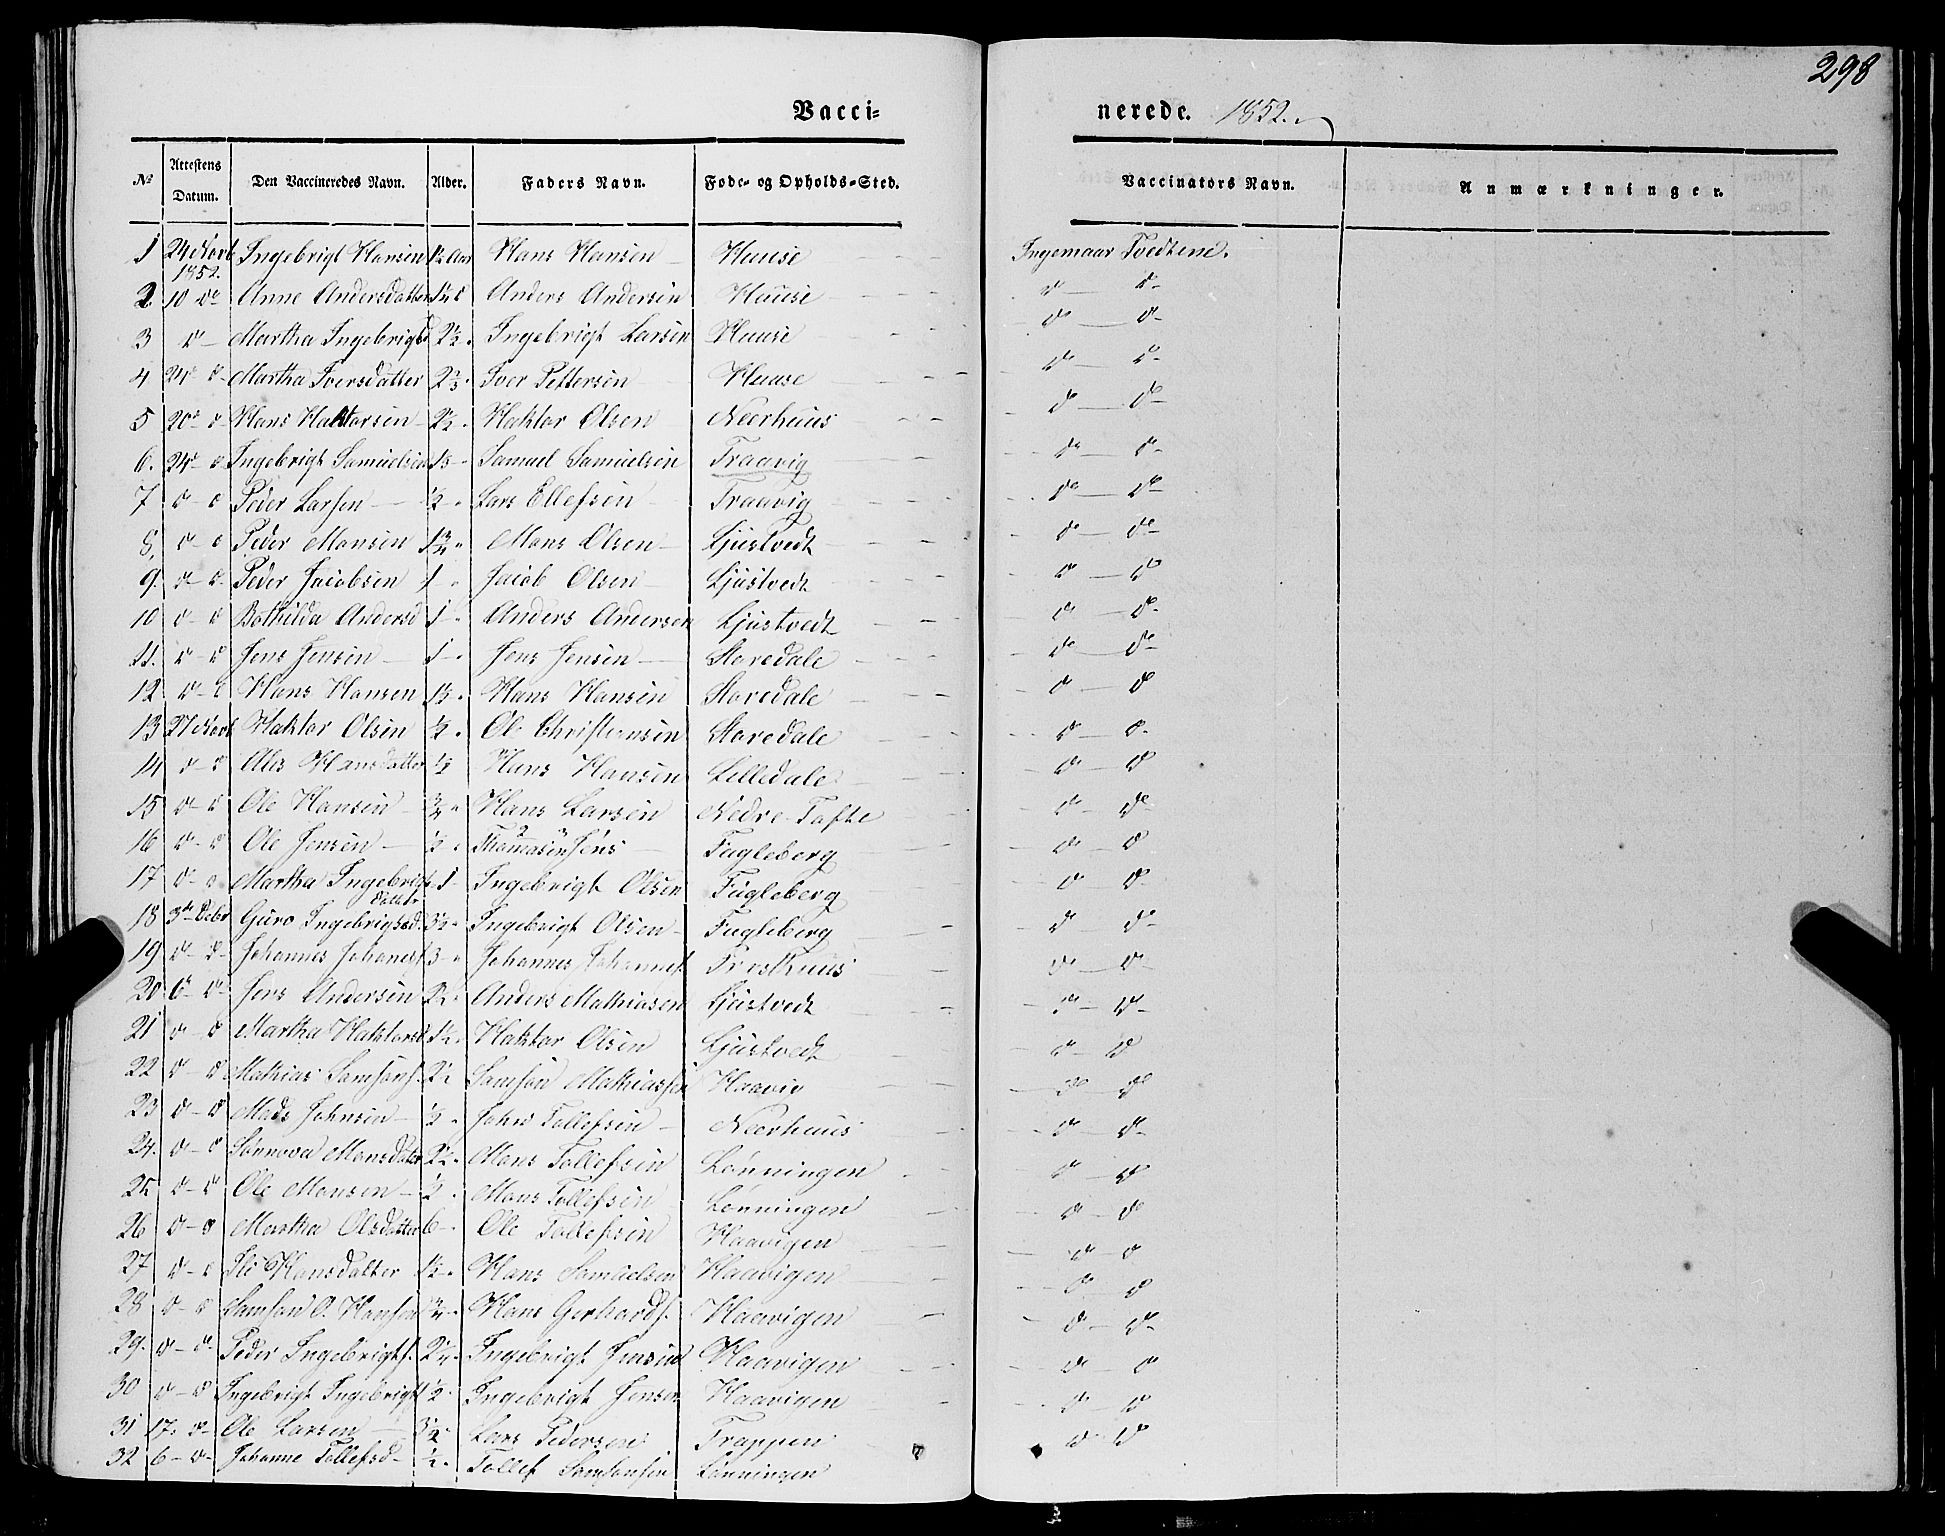 298
Vacci=
nerede. 1852.
№ Attestens Datum. Den Vaccineredes Navn. Alder. Faders Navn. Føde- og Opholds-Sted. Vaccinators Navn. Anmærkninger.
1 24 Novb 1852. Ingebrigt Hansen 1½ Aar Hans Hansen Hause Ingemaar Tvedtene.
2 10 do Anne Andersdatter Anders Andersen Hause do do
3 do Martha Ingebrigtsd 2½ Ingebrigt Larsen Hause do do
4 24 do Martha Iversdatter Iver Pettersen Hause do do
5 20 do Hans Haktorsen 2½ Haktor Olsen Neerhuus do do
6. 24 do Ingebrigt Samuelsen Samuel Samuelsen Traavig do do
7 do do Peder Larsen ½ Lars Ellefsen Traavig do do
8. do do Peder Monsen 1¾ Mons Olsen Ljustvedt do do
9. do do Peder Jacobsen 1 Jacob Olsen Ljustvedt do do
10 do do Bothilda Andersd 1 Anders Andersen Ljustvedt do do
11. do do Jens Jensen 1 Jens Jensen Storedale do do
12 do do Hans Hansen Hans Hansen Storedale do do
13 27 Novb Haktor Olsen ½ Ole Christensen Storedale do do
14 do do Hansdatter ½ Hans Hansen Lilledale do do
15 do do Ole Hansen ¾ Hans Larsen Nedre Tofte do do
16 do do Ole Jensen ½ Thomasen Jens Fugleberg do do
17 do do Martha Ingebrigtsdatter 1 Ingebrigt Olsen Fugleberg do do
18 3die Debr Guro Ingebrigtsd. 3½ Ingebrigt Olsen Fugleberg do do
19 do do Johannes Johanesf 3 Johannes Johannesf. do do
20 6 do Jens Andersen Anders Mathiasen Ljustvedt do do
21 do do Martha Haktorsd 1½ Haktor Olsen Ljustvedt do do
22 do do Mathias Samsons. Samson Mathiassen Haavig do do
23 do do Mads Johnsen ½ John Tollefsen Neerhuus do do
24. do do Sønnova Monsdater 2½ Mons Tollefsen Lønningen do do
25 do do Ole Monsen ½ Mons Tollefsen Lønningen do do
26 do do Martha Olsdatter 6 Ole Tollefsen Haavigen do do
27 do do Sli Hansdatter 1½ Hans Samuelsen Haavigen do do
28 do do Samson O. Hansen ¾ Hans Gerhards. Haavigen do do
29. do do Peder Ingebrigts. Ingebrigt Jensen Haavigen do do
30 do do Ingebrigt Ingebrigts ½ Ingebrigt Jensen Haavigen do do
31 17. do Ole Larsen 3½ Lars Pedersen Trappen do do
32 6 do Johanne Tollefsd ½ Tollef Samsonsen Lønningen